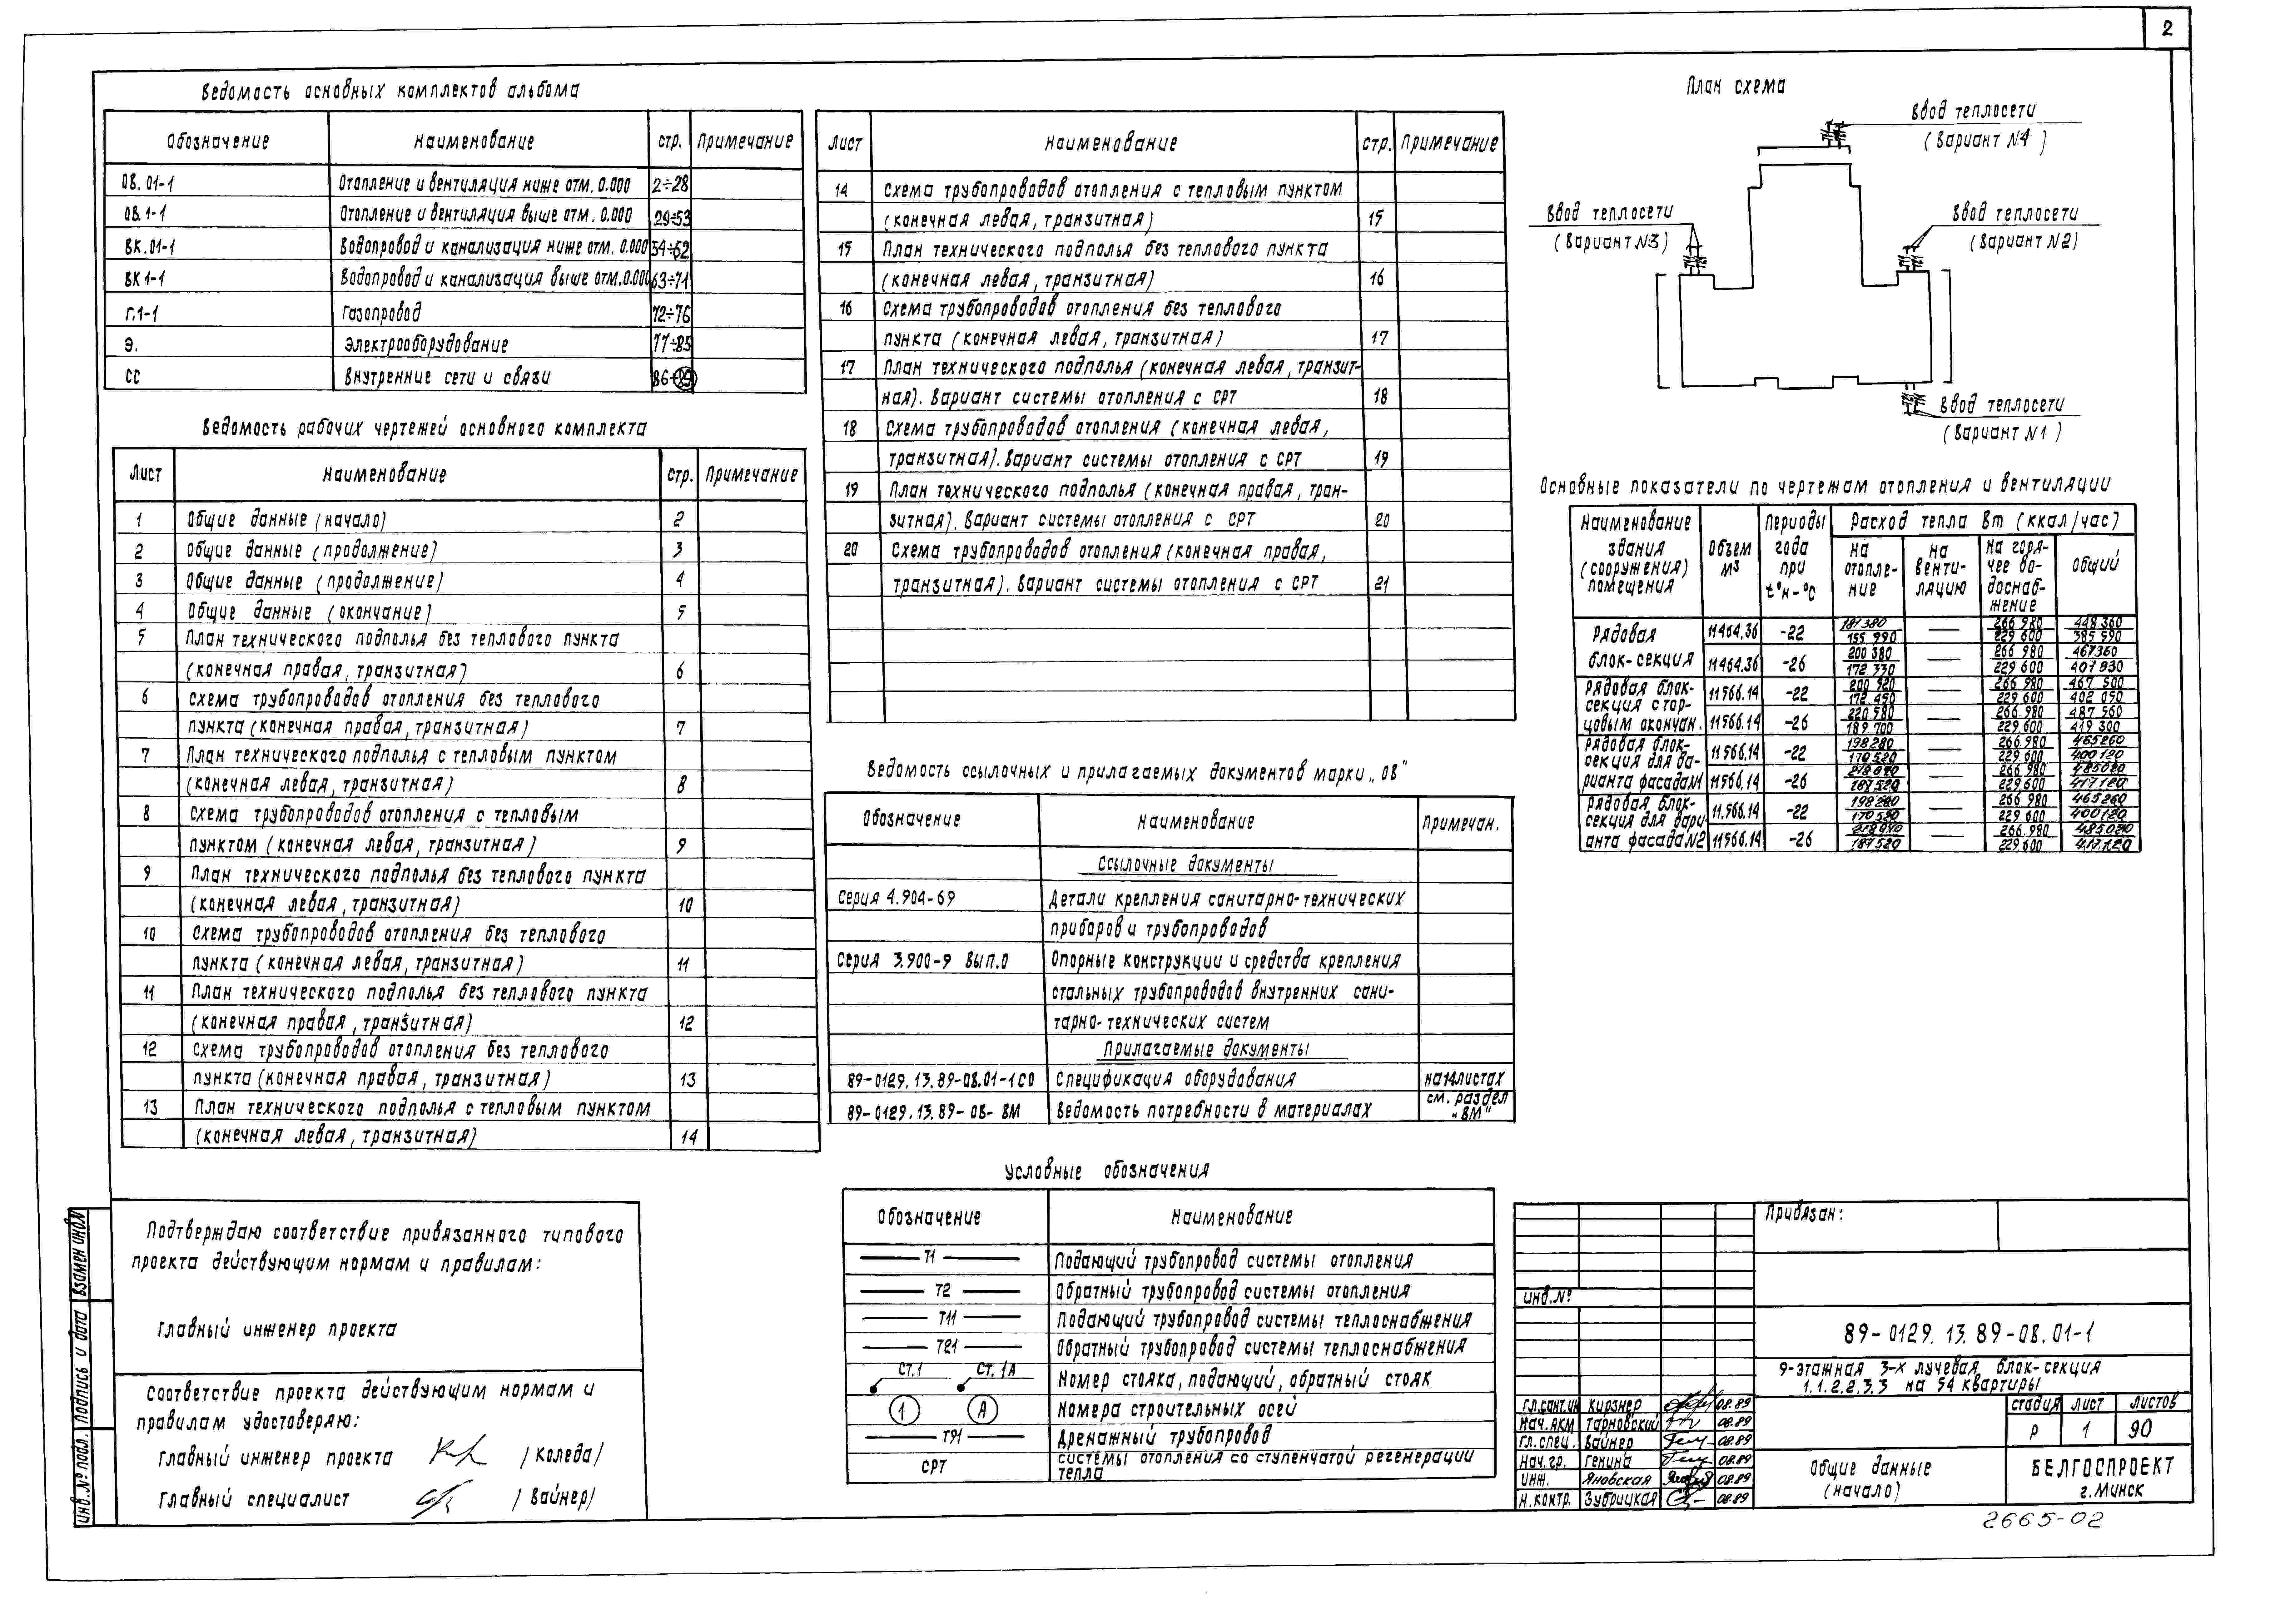 2
Ведомость основных комплектов альбома
Обозначение Наименование стр. Примечание
ОВ.01-1 Отопление и вентиляция ниже отм. 0.000 2÷28
ОВ.1-1 Отопление и вентиляция выше отм. 0.000 29÷53
ВК.01-1 Водопровод и канализация ниже отм. 0.000 54÷62
ВК1-1 Водопровод и канализация выше отм. 0.000 63÷71
Г.1-1 Газопровод 72÷76
Э. Электрооборудование 77÷85
СС Внутренние сети и связи 86÷89
Ведомость рабочих чертежей основного комплекта
Лист Наименование стр. Примечание
1 Общие данные (начало) 2
2 Общие данные (продолжение) 3
3 Общие данные (продолжение) 4
4 Общие данные (окончание) 5
5 План технического подполья без теплового пункта
(конечная правая, транзитная) 6
6 Схема трубопроводов отопления без теплового
пункта (конечная правая, транзитная) 7
7 План технического подполья с тепловым пунктом
(конечная левая, транзитная) 8
8 Схема трубопроводов отопления с тепловым
пунктом (конечная левая, транзитная) 9
9 План технического подполья без теплового пункта
(конечная левая, транзитная) 10
10 Схема трубопроводов отопления без теплового
пункта (конечная левая, транзитная) 11
11 План технического подполья без теплового пункта
(конечная правая, транзитная) 12
12 Схема трубопроводов отопления без теплового
пункта (конечная правая, транзитная) 13
13 План технического подполья с тепловым пунктом
(конечная левая, транзитная) 14
Лист Наименование стр. Примечание
14 Схема трубопроводов отопления с тепловым пунктом
(конечная левая, транзитная) 15
15 План технического подполья без теплового пункта
(конечная левая, транзитная) 16
16 Схема трубопроводов отопления без теплового
пункта (конечная левая, транзитная) 17
17 План технического подполья (конечная левая, транзит-
ная). Вариант системы отопления с СРТ 18
18 Схема трубопроводов отопления (конечная левая,
транзитная). Вариант системы отопления с СРТ 19
19 План технического подполья (конечная правая, тран-
зитная). Вариант системы отопления с СРТ 20
20 Схема трубопроводов отопления (конечная правая,
транзитная). Вариант системы отопления с СРТ 21
Ведомость ссылочных и прилагаемых документов марки „ОВ"
Обозначение Наименование Примечан.
Ссылочные документы
Серия 4.904-69 Детали крепления санитарно-технических
приборов и трубопроводов
Серия 3.900-9 Вып.0 Опорные конструкции и средства крепления
стальных трубопроводов внутренних сани-
тарно-технических систем
Прилагаемые документы
89-0129.13.89-ОВ.01-1СО Спецификация оборудования на14листах
89-0129.13.89-ОВ-ВМ Ведомость потребности в материалах см. раздел
„ВМ"
Условные обозначения
Обозначение Наименование
Т1 Подающий трубопровод системы отопления
Т2 Обратный трубопровод системы отопления
Т11 Подающий трубопровод системы теплоснабжения
Т21 Обратный трубопровод системы теплоснабжения
Ст.1 Ст.1А Номер стояка, подающий, обратный стояк
1 А Номера строительных осей
Т91 Дренажный трубопровод
СРТ системы отопления со ступенчатой регенерации
тепла
План схема
Ввод теплосети
(Вариант №4)
Ввод теплосети
(Вариант №3)
Ввод теплосети
(Вариант №2)
Ввод теплосети
(Вариант №1)
Основные показатели по чертежам отопления и вентиляции
Наименование здания (сооружения) помещения Объем м³ Периоды года при t°н-°С Расход тепла Вт (ккал/час)
на отопле-ние на венти-ляцию на горя-чее во-доснаб-жение общий
Рядовая блок-секция 11464.36 -22 181380 266 980 448 360
155 990 — 229 600 385 590
11464.36 -26 200 380 266 980 467360
172 330 — 229 600 401 930
Рядовая блок-секция с тор-цовым окончан. 11566.14 -22 200 520 266 980 467 500
172 450 — 229 600 402 050
11566.14 -26 220 580 266 980 487 560
189 700 — 229 600 419 300
Рядовая блок-секция для ва-рианта фасада№1 11566.14 -22 198280 266 980 465260
170520 — 229600 400120
11566.14 -26 266 980 485020
187520 — 229600 417120
Рядовая блок-секция для вари-анта фасада№2 11.566.14 -22 198280 266 980 465260
170520 — 229 600 400120
11566.14 -26 266.980 485020
187520 — 229600 417120
Подтверждаю соответствие привязанного типового
проекта действующим нормам и правилам:
Главный инженер проекта
Соответствие проекта действующим нормам и
правилам удостоверяю:
Главный инженер проекта /Коледа/
Главный специалист /Вайнер/
Инв.№ подл. Подпись и дата Взамен инв№
Привязан:
инв.№
89-0129.13.89-ОВ.01-1
9-этажная 3-х лучевая блок-секция
1.1.2.2.3.3 на 54 квартиры
Гл.сант.ин Кирзнер 08.89
Нач.АКМ Тарновский 08.89
Гл.спец. Вайнер 08.89
Нач.гр. Генина 08.89
инж. Яновская 08.89
Н.контр. Зубрицкая 08.89
стадия лист листов
Р 1 90
Общие данные
(начало)
БЕЛГОСПРОЕКТ
г.Минск
2665-02